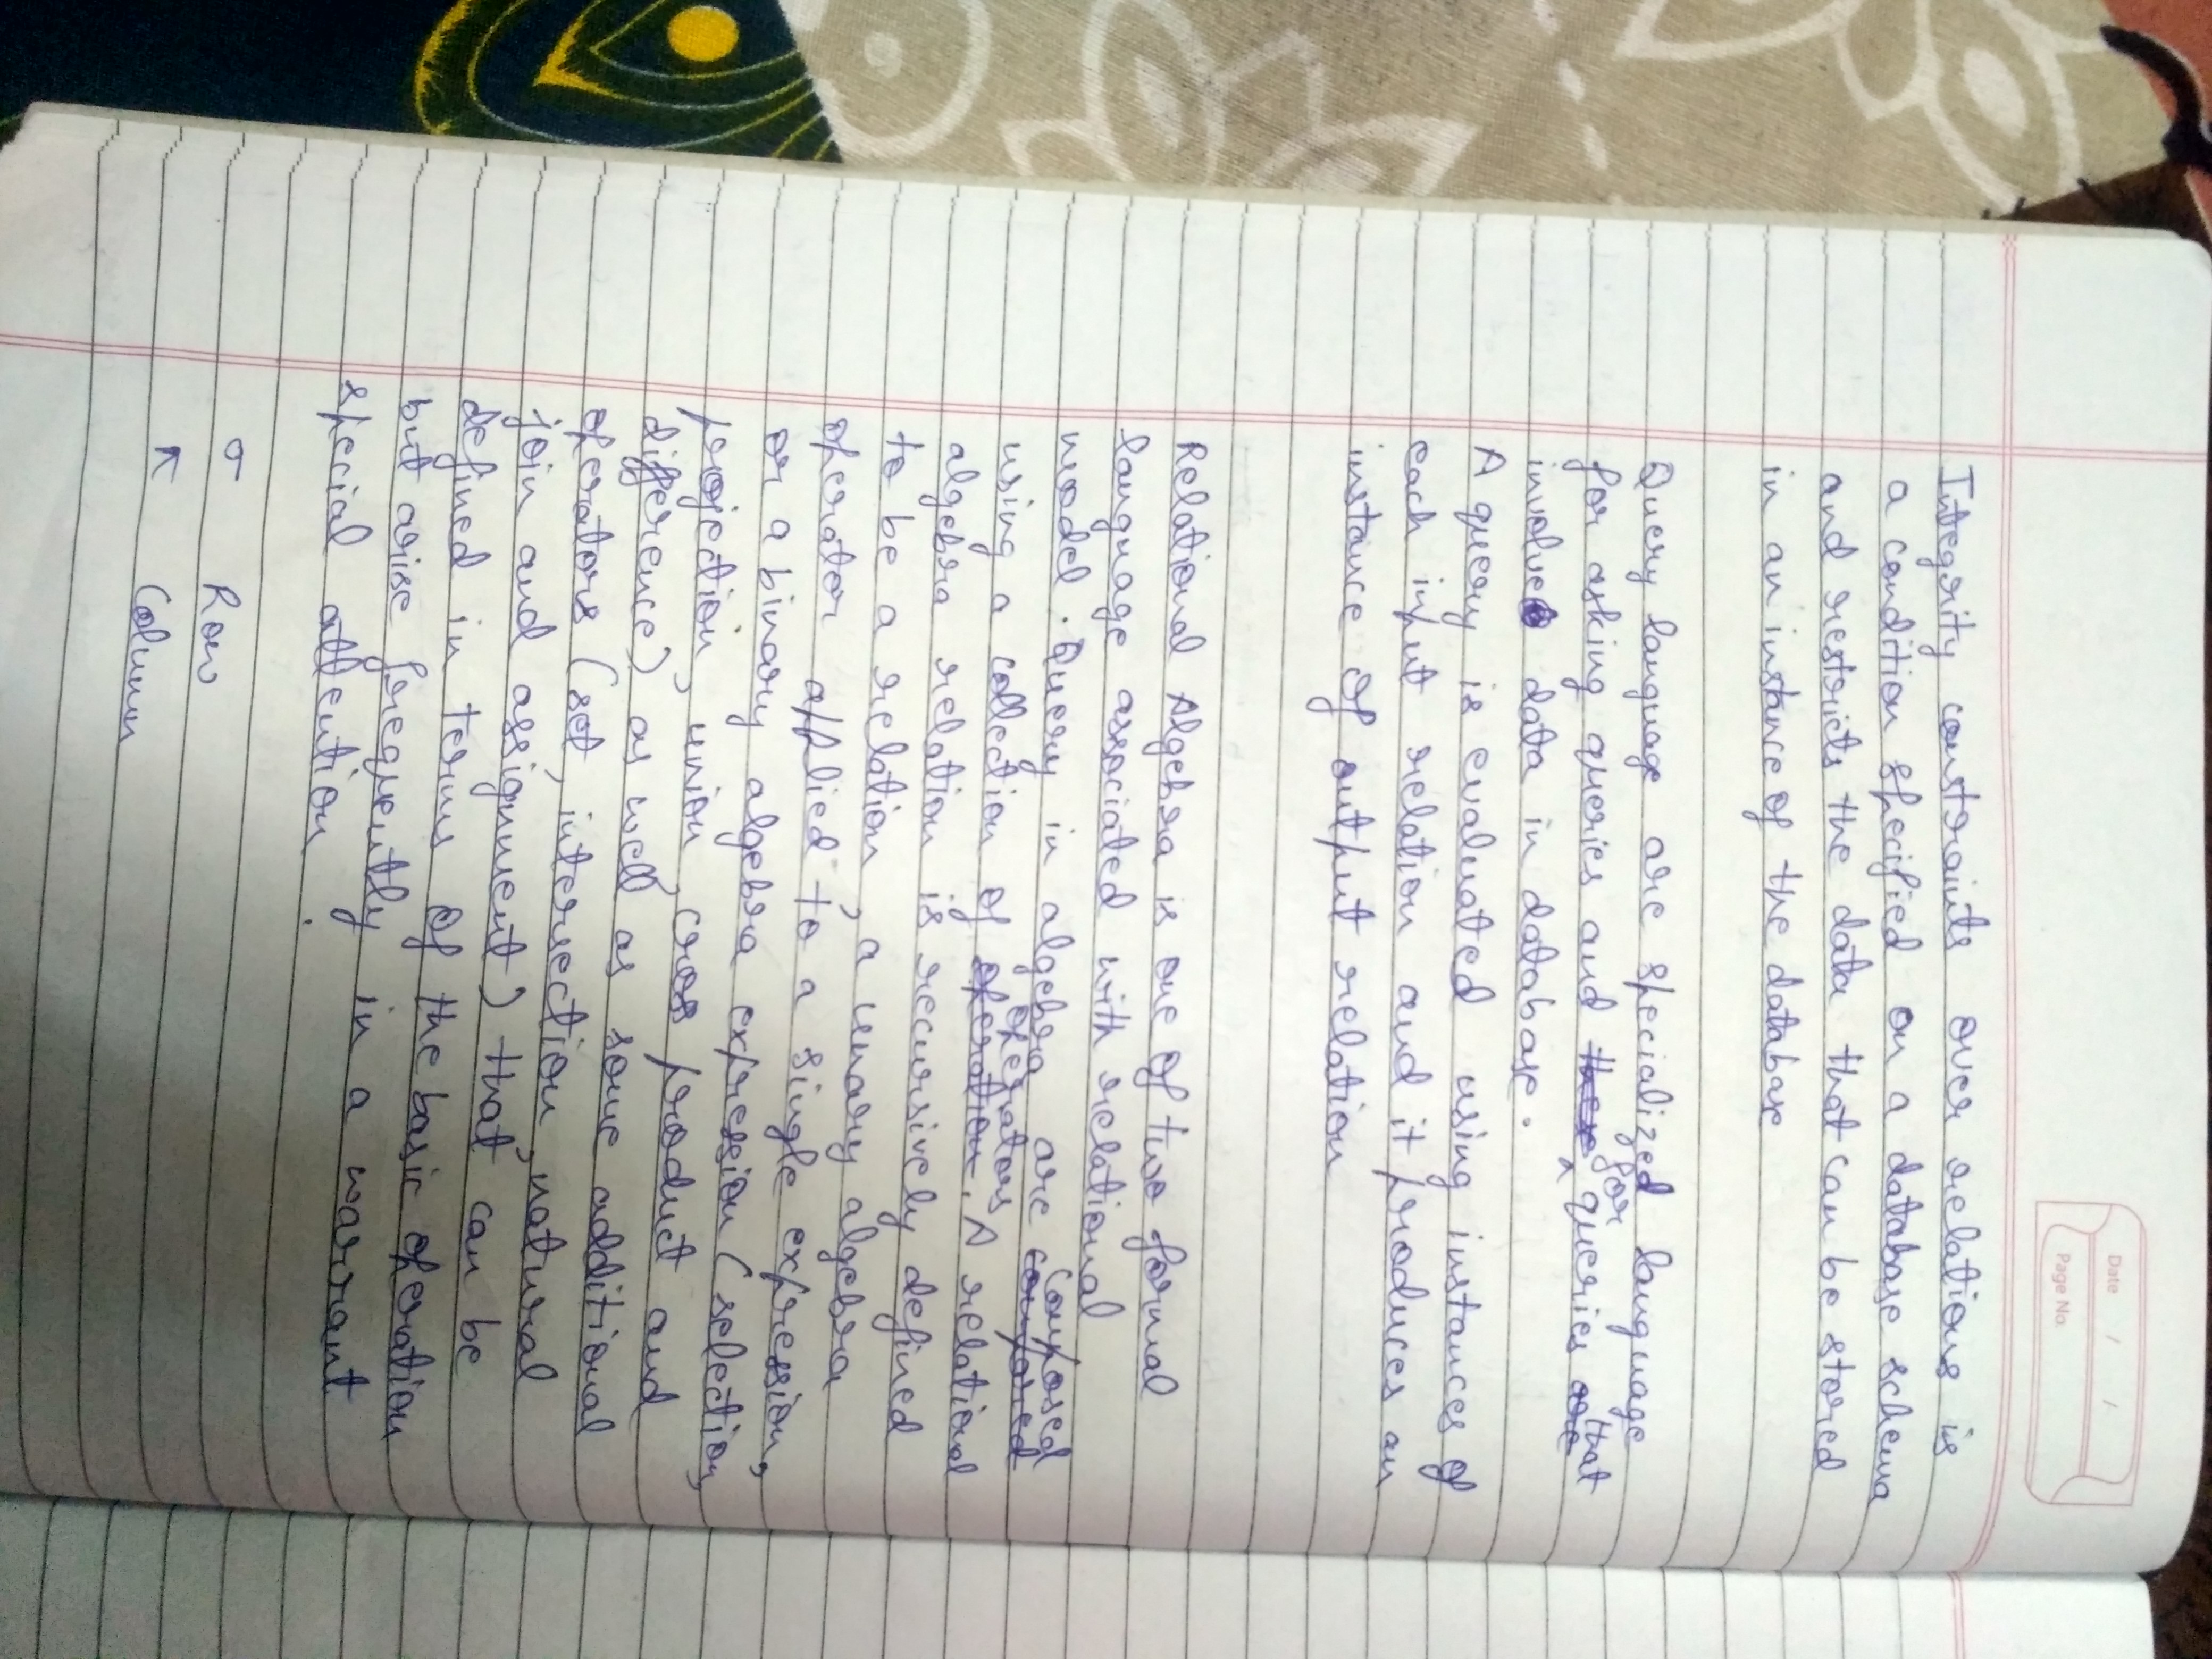 Date / /
Page No.
Integrity constraints over relations is
a condition specified on a database schema
and restricts the data that can be stored
in an instance of the database
Query language are specialized language
for asking queries and for queries that
involve data in database.
A query is evaluated using instances of
each input relation and it produces an
instance of output relation
Relational Algebra is one of two formal
language associated with relational
model. Query in algebra are composed
using a collection of operators. A relational
algebra relation is recursively defined
to be a relation, a unary algebra
operator applied to a single expression,
or a binary algebra expression (selection,
projection, union, cross product and
difference) as well as some additional
operators (set, intersection, natural
join and assignment) that can be
defined in terms of the basic operation
but arise frequently in a warrant
special attention.
σ Row
π Column